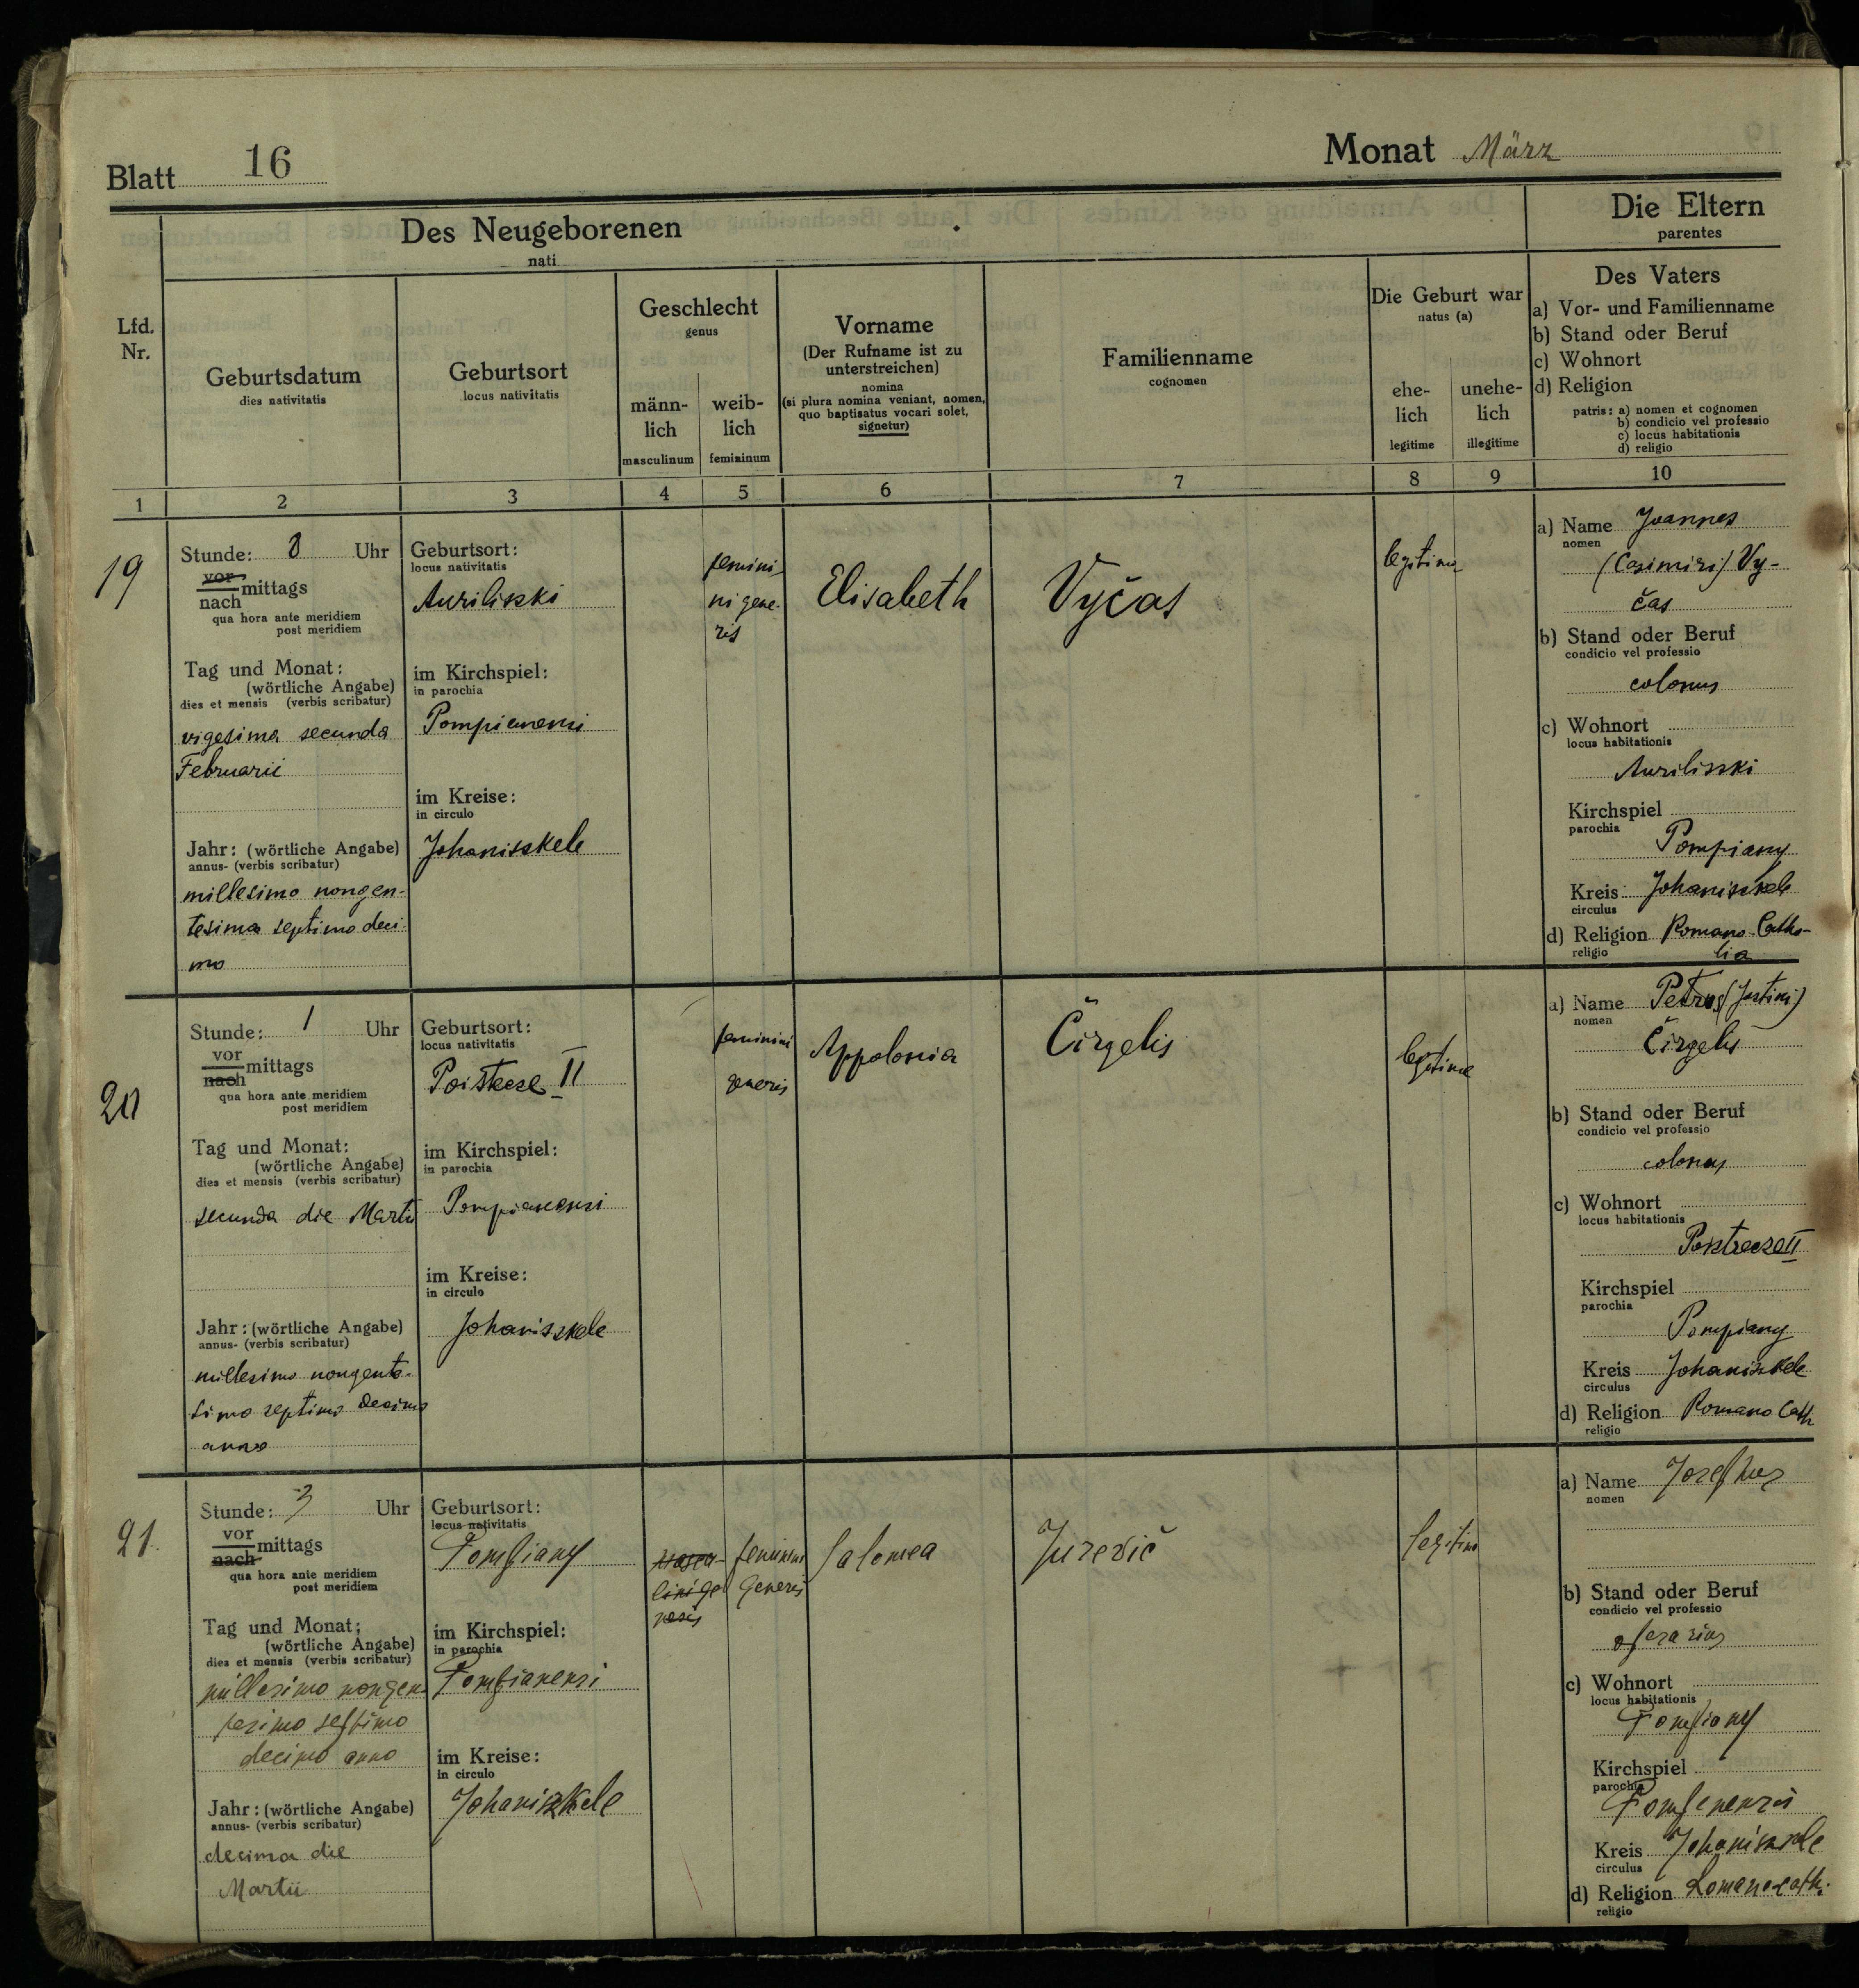 Blatt 16
Monat März
Des Neugeborenen
nati
Die Eltern
parentes
Lfd.
Nr.
Geburtsdatum
dies nativitatis
Geburtsort
locus nativitatis
Geschlecht
genus
männ-
lich
masculinum
weib-
lich
femininum
Vorname
(Der Rufname ist zu
unterstreichen)
nomina
(si plura nomina veniant, nomen,
quo baptisatus vocari solet,
signetur)
Familienname
cognomen
Die Geburt war
natus (a)
ehe-
lich
legitime
unehe-
lich
illegitime
Des Vaters
a) Vor- und Familienname
b) Stand oder Beruf
c) Wohnort
d) Religion
patris: a) nomen et cognomen
b) condicio vel professio
c) locus habitationis
d) religio
1 2 3 4 5 6 7 8 9 10
19
Stunde: 8 Uhr
vor
mittags
nach
qua hora ante meridiem
post meridiem
Tag und Monat:
(wörtliche Angabe)
dies et mensis (verbis scribatur)
vigesima secunda
Februarii
Jahr: (wörtliche Angabe)
annus- (verbis scribatur)
millesimo nongen-
tesimo septimo deci-
mo
Geburtsort:
locus nativitatis
Auriliszki
im Kirchspiel:
in parochia
Pompianensi
im Kreise:
in circulo
Johaniszkele
femini-
ni gene-
ris
Elisabeth
Vyčas
legitima
a) Name Joannes
nomen
(Casimiri) Vy-
čas
b) Stand oder Beruf
condicio vel professio
colonus
c) Wohnort
locus habitationis
Auriliszki
Kirchspiel
parochia
Pompiany
Kreis Johaniszkele
circulus
d) Religion Romano-Catho-
religio
20
Stunde: 1 Uhr
vor
mittags
nach
qua hora ante meridiem
post meridiem
Tag und Monat:
(wörtliche Angabe)
dies et mensis (verbis scribatur)
secunda die Martii
Jahr: (wörtliche Angabe)
annus- (verbis scribatur)
millesimo nongente-
simo septimo decimo
anno
Geburtsort:
locus nativitatis
II
im Kirchspiel:
in parochia
Pompianensi
im Kreise:
in circulo
Johaniszkele
feminini
generis
Appolonia
Čirgelis
legitime
a) Name Petrus (Justini)
nomen
Čirgelis
b) Stand oder Beruf
condicio vel professio
colonus
c) Wohnort
locus habitationis
II
Kirchspiel
parochia
Pompiany
Kreis Johaniszkele
circulus
d) Religion Romano Cath
religio
21.
Stunde: 3 Uhr
vor
mittags
nach
qua hora ante meridiem
post meridiem
Tag und Monat:
(wörtliche Angabe)
dies et mensis (verbis scribatur)
millesimo nongen-
tesimo septimo
decimo anno
Jahr: (wörtliche Angabe)
annus- (verbis scribatur)
decima die
Martii
Geburtsort:
locus nativitatis
Pompiany
im Kirchspiel:
in parochia
Pompianensi
im Kreise:
in circulo
Johaniszkele
mascu-
lini ge
neris
feminini
generis
Salomea
Jurevič
legitima
a) Name Josephus
nomen
b) Stand oder Beruf
condicio vel professio
operarius
c) Wohnort
locus habitationis
Pompiany
Kirchspiel
parochia
Kreis Johaniszkele
circulus
d) Religion Romano-cath.
religio